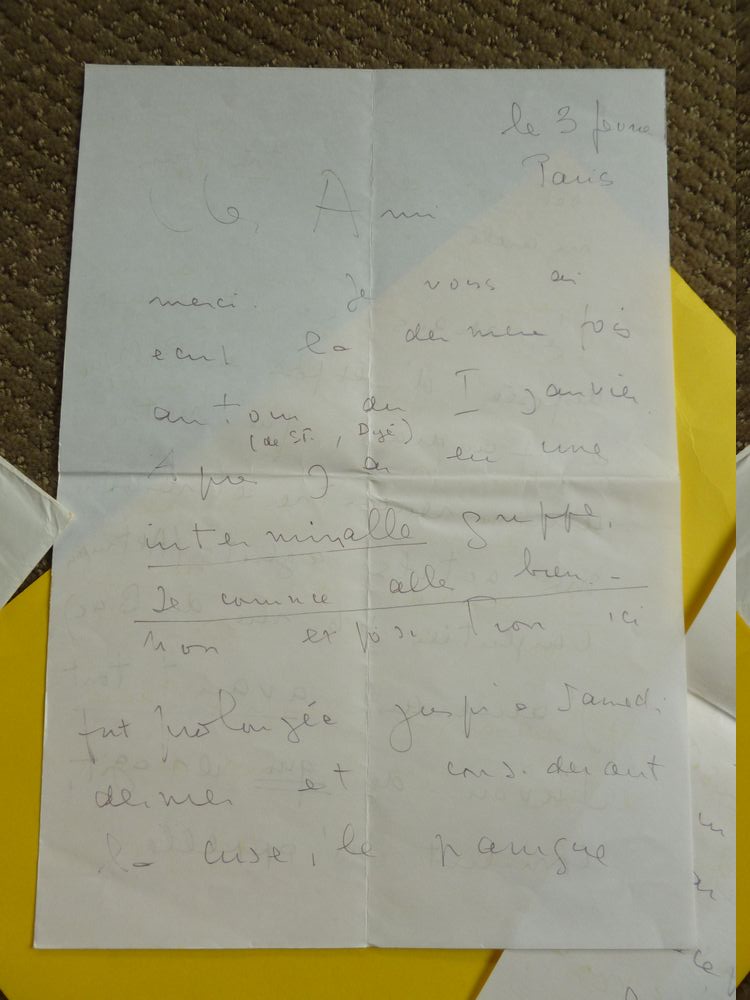 le 3
Paris
Ami
merci. Je vous ai
la fois
autour du I janvier.
(de ST. , Dyé)
Apres j ai eu une
interminable grippe.
Je commce allé bien -
Mon exposition ici
fut prolongée jusqu'a Samedi
dernier et considerant
la crise, le panique